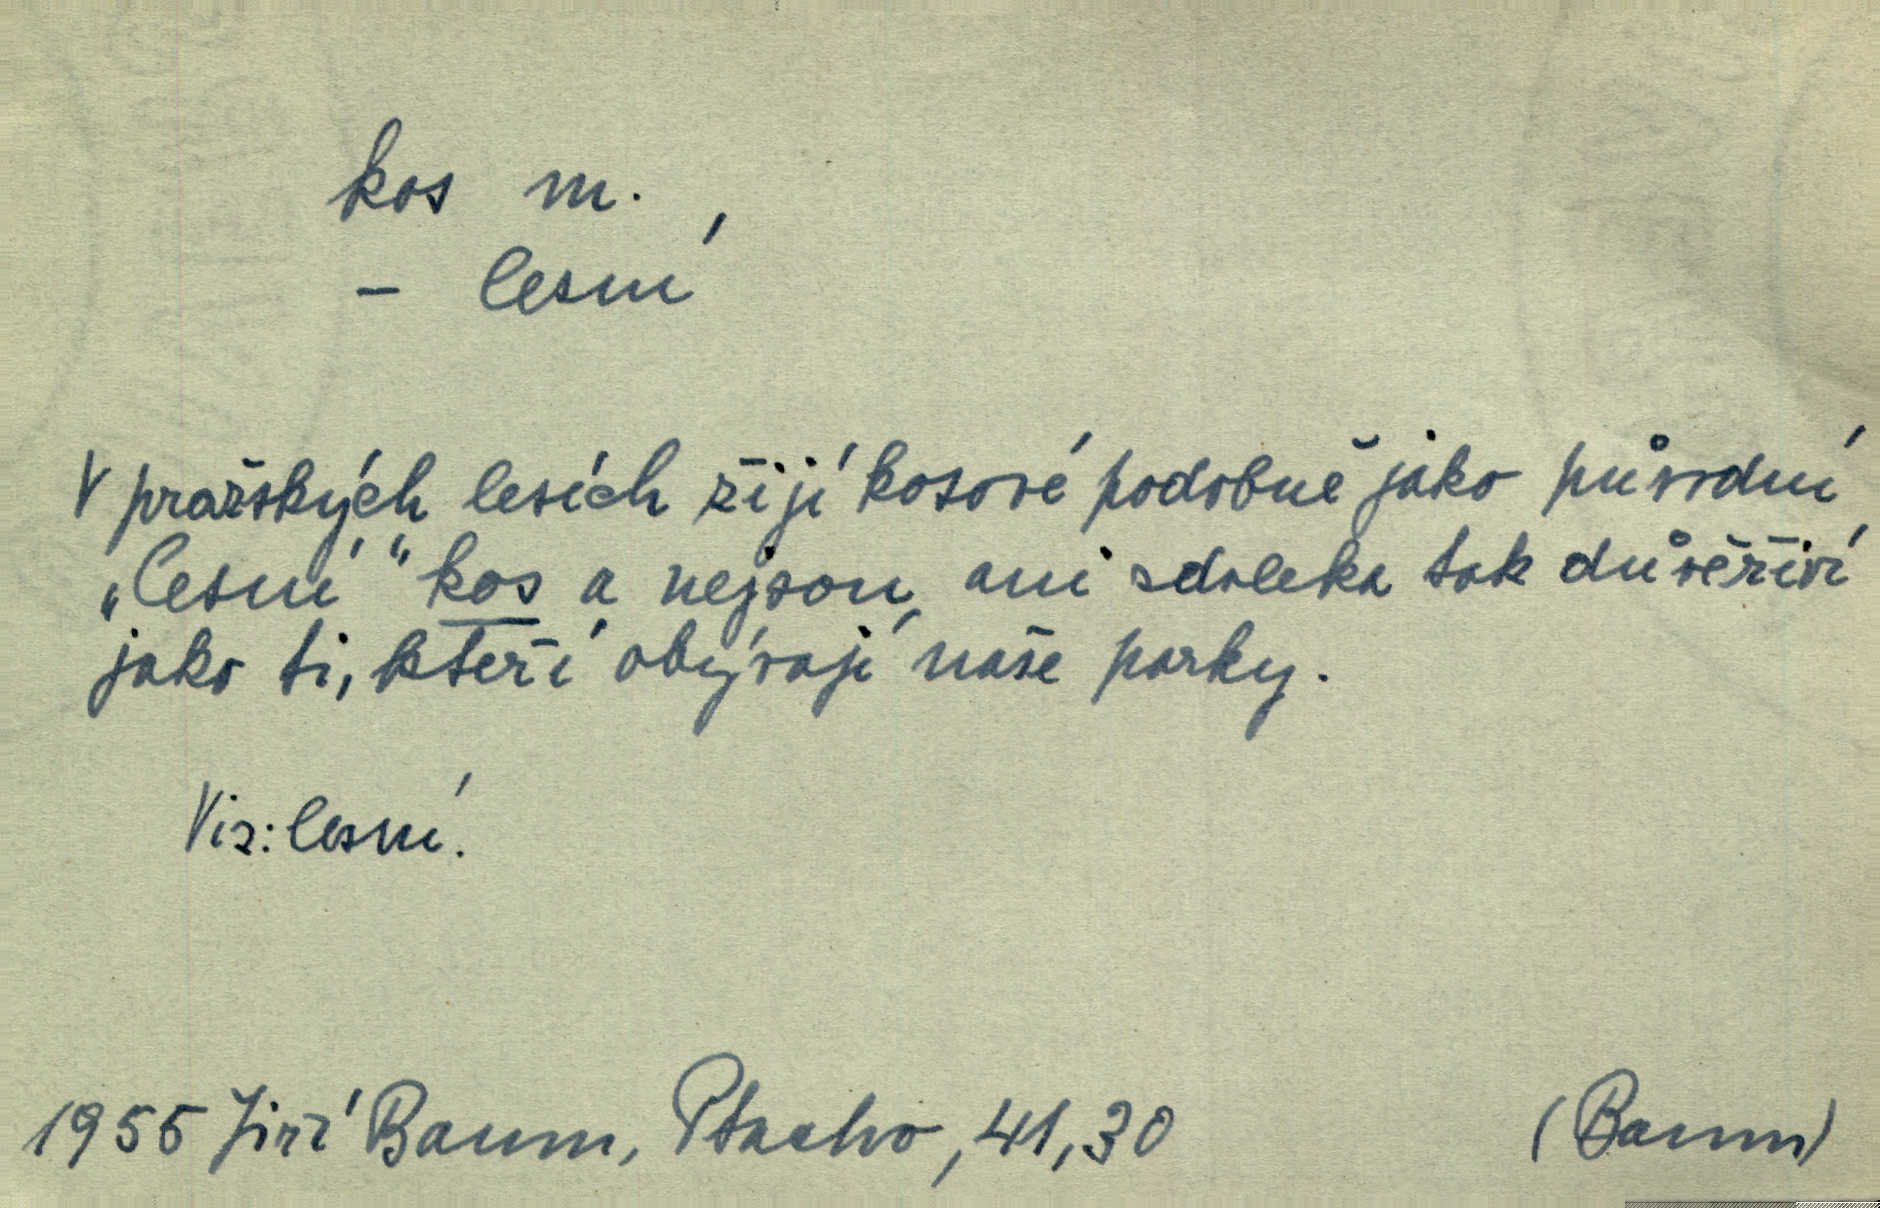 kos m.
- lesní
V pražských lesích žijí kosové podobně jako původní
„lesní“ kos a nejsou ani zdaleka tak důvěřiví
jako ti, kteří obývají naše parky.
Viz: lesní.
1955 Jiří Baum, Ptactvo, 41, 30
(Baum)